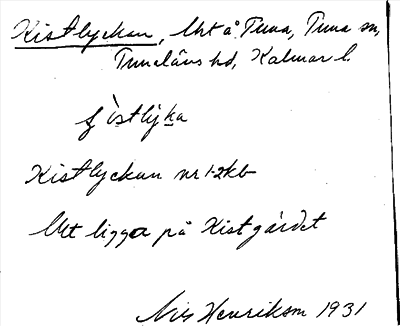 Kistlyckan, Urt å Tuna, Tuna sn,
Tunaläns hd, Kalmar l.
Kistlyckan nr 1-2 kb
Urt ligga på Kistgärdet
Nils Henrikson 1931